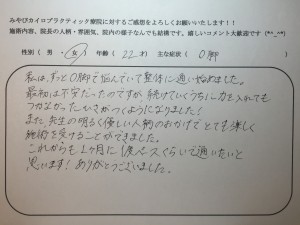 みやびカイロプラクティック療院に対するご感想をよろしくお願いいたします！！
施術内容、院長の人柄・雰囲気、院内の様子なんでも結構です。嬉しいコメント大歓迎です (*^_^*)
性別（ 男 ・ 女 ） 年齢（ 22才 ） 主な症状（ O脚 ）
私は、ずっとO脚で悩んでいて整体に通い始めました。
最初は不安だったのですが、続けていくうちに力を入れても
つかなかったひざがつくようになりました！
また、先生の明るく優しい人柄のおかげでとても楽しく
施術を受けることができました。
これからも1ヶ月に1度ペースくらいで通いたいと
思います！ありがとうございました。